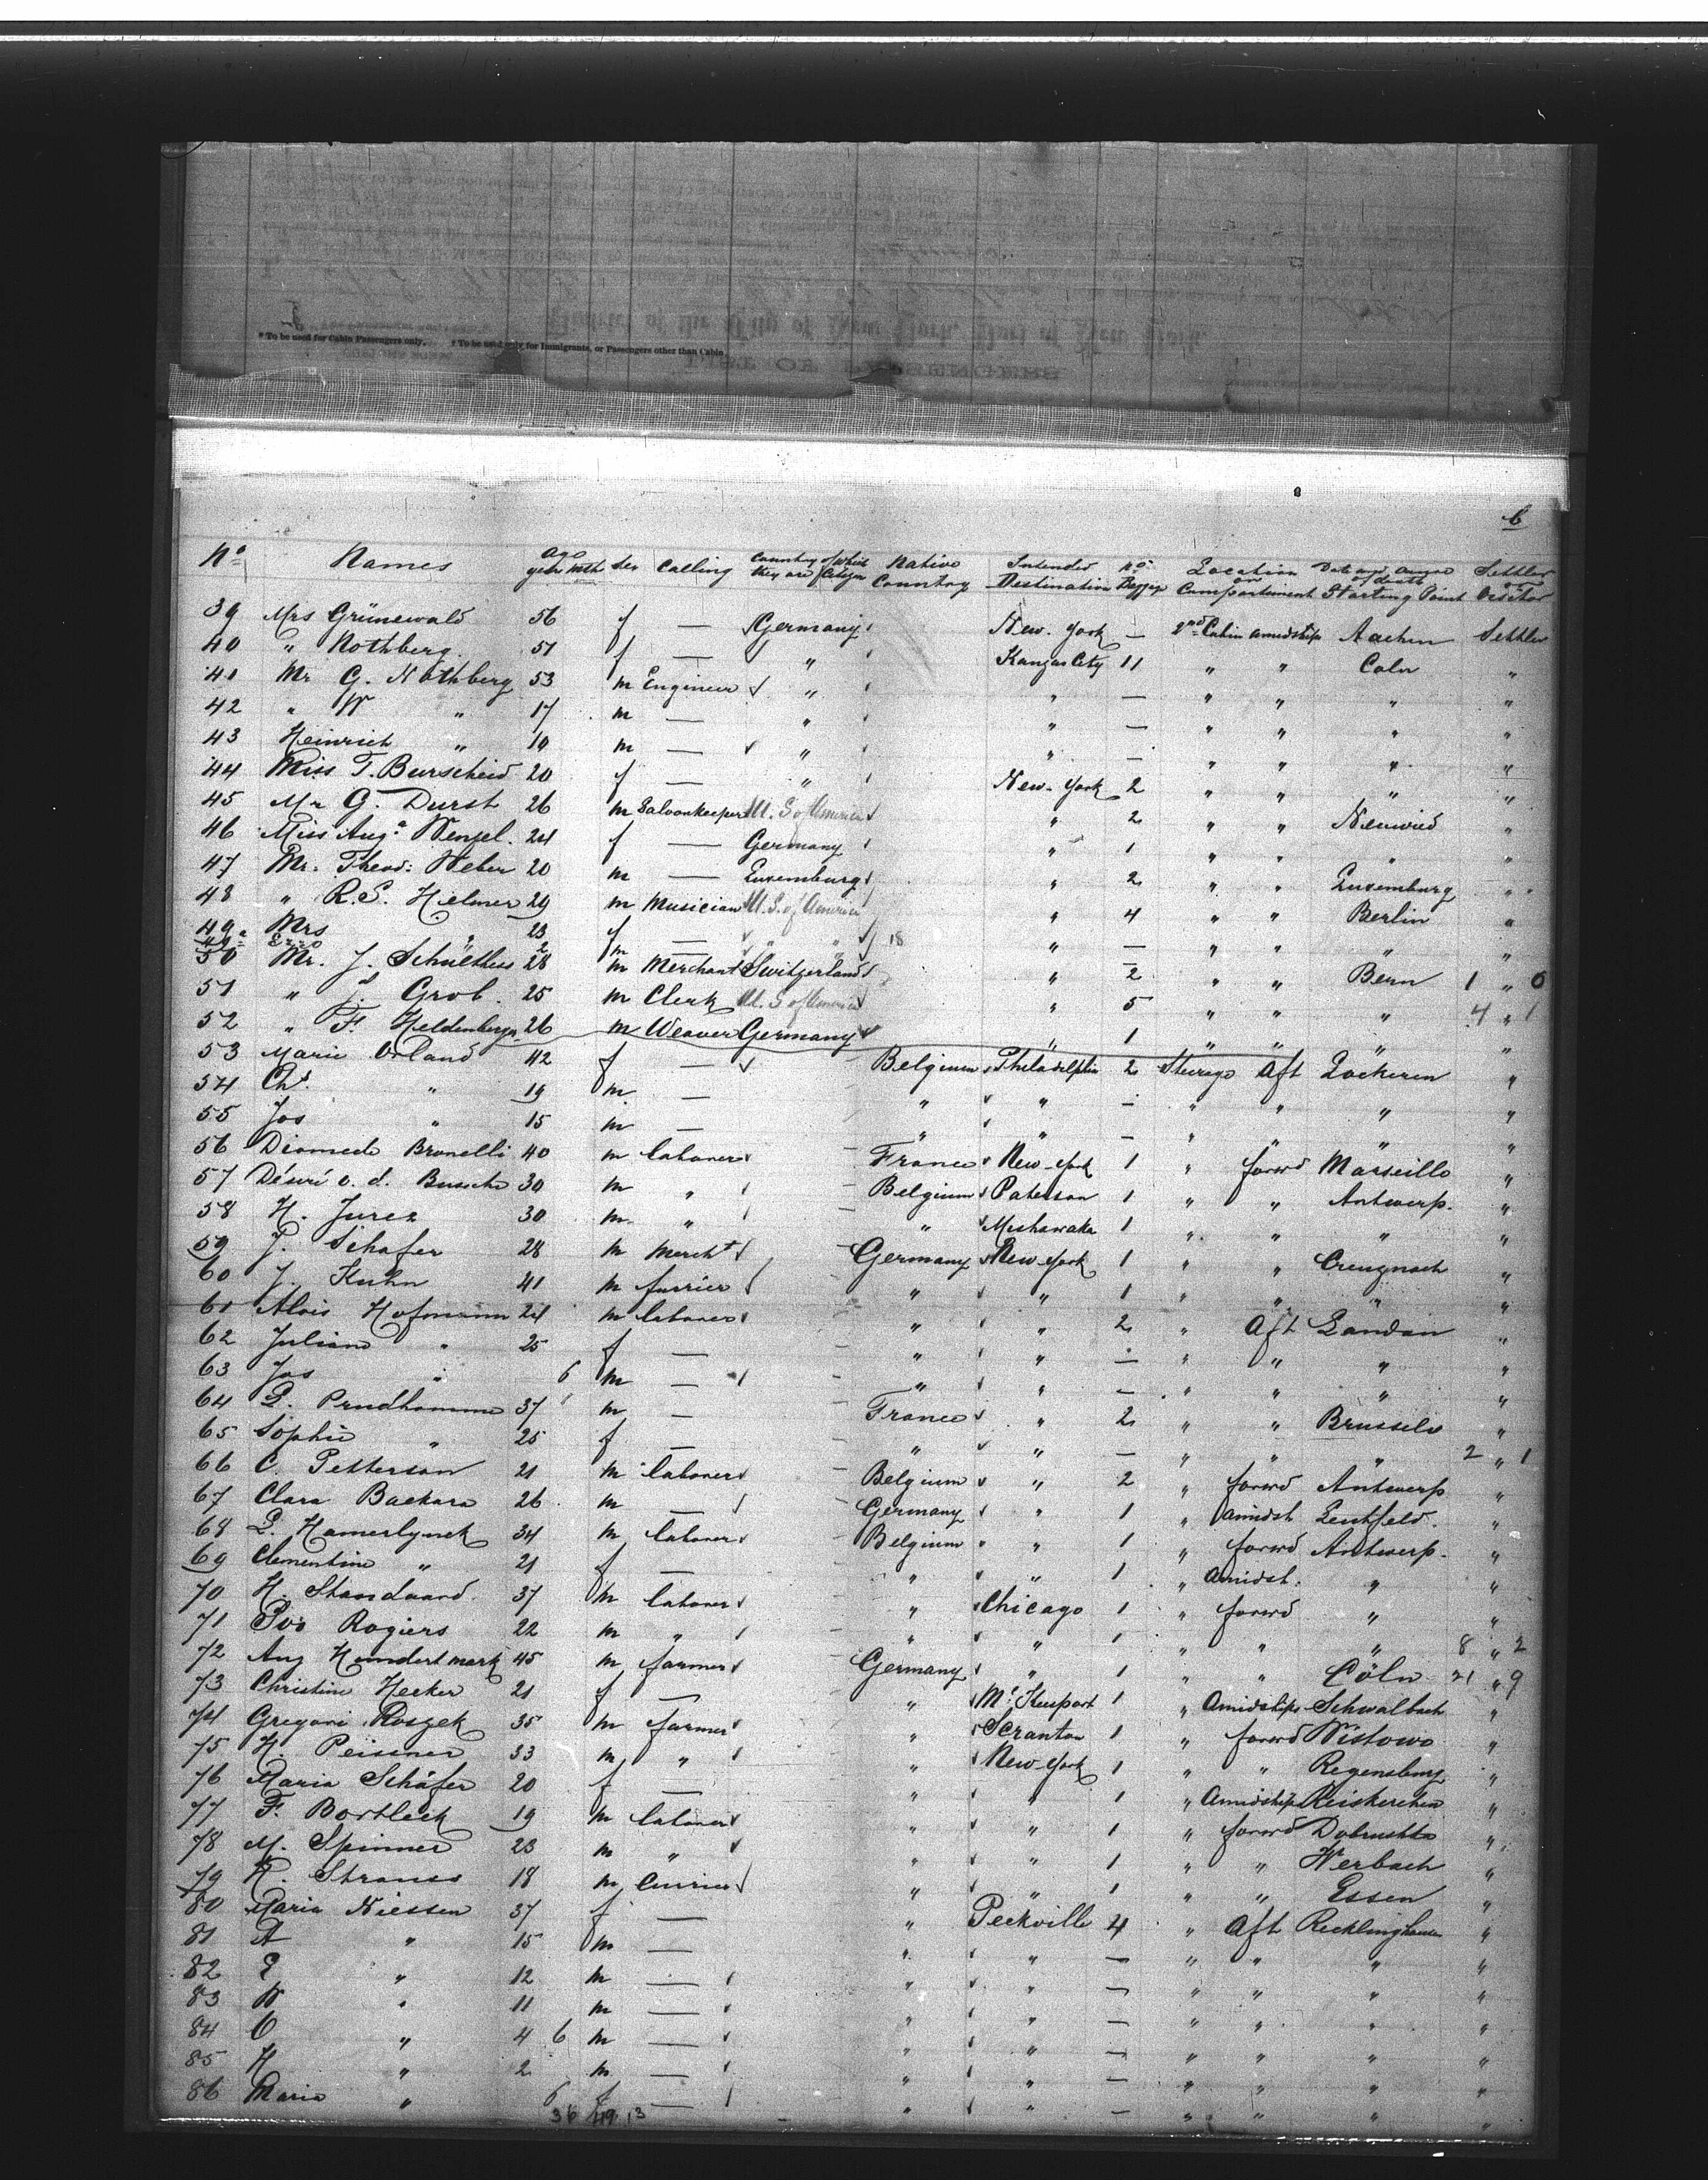 * To be used for Cabin Passengers only. † To be used only for Immigrants, or Passengers other than Cabin
6
No Names Age years mth Sex Calling Country of which they are Citizen Native Country Intended Destination No Baggage Location or Compartment Date and Cause of death Starting Point Settler or Visitor
39 Mrs Grünewald 56 f — Germany New-York — 2nd Cabin amidships Aachen Settler
40 " Nothberg 51 f — " Kansas City 11 " " Coln "
41 Mr G. Nothberg 53 m Engineer " " — " " " "
42 " W " 17 m — " " — " " " "
43 Heinrich " 10 m — " " — " " " "
44 Miss T. Burscheid 20 f — " New-York 2 " " " "
45 Mr G. Durst 26 m Saloonkeeper U.S of America " 2 " " Neuwied "
46 Miss Aug.a Wenzel 24 f — Germany " 1 " " " "
47 Mr. Theod: Weber 20 m — Luxemburg " 2 " " Luxemburg "
48 " R.E. Helmer 29 m Musician U.S. of America " 4 " " Berlin "
49 Mrs " 23 f — " " 18 " — " " " "
49a 2 m —
50 Mr. J. Schulthess 28 m Merchant Switzerland " 2 " " Bern 1 " 0
51 " Grob 25 m Clerk U.S of America " 5 " " " 4 " 1
52 " F. Heldenbergn 26 m Weaver Germany " 1 " " " "
53 Marie Orland 42 f — Belgium Philadelphia 2 Steerage Aft Lockeren "
54 Chs. " 19 m — " " — " " " "
55 Jos " 15 m — " " — " " " "
56 Diomede Bronelli 40 m laborer France New-York 1 " forwd Marseille "
57 Désiré v. d. Bussche 30 m " Belgium Paterson 1 " " Antwerp. "
58 H. Jurez 30 m " " Mishawaka 1 " " " "
59 J. Schafer 28 m Mercht Germany New-York 1 " " Creuznach "
60 J. Kuhn 41 m furrier " " 1 " " " "
61 Alois Hofmann 24 m laborer " " 2 " Aft Landau "
62 Juliane " 25 f — " " — " " " "
63 Jos " 6 m — " " — " " " "
64 L. Prudhomme 37 m — France " 2 " " Brussels "
65 Sophie " 25 f — " " — " " " 2 " 1
66 C. Petterson 21 m laborer Belgium " 2 " forwd Antwerp "
67 Clara Backara 26 m — Germany " 1 " amidsh Leutfeld. "
68 L. Hamerlynck 34 m laborer Belgium " 1 " forwd Antwerp. "
69 Clementine " 21 f — " " 1 " Amidsh. " "
70 H. Standaard 37 m laborer " Chicago 1 " forwd " "
71 Ivo Rogiers 22 m " " " 1 " " " 8 " 2
72 Aug Hundertmark 45 m farmer Germany " 1 " " Cöln 21 " 9
73 Christine Hecker 21 f — " Mc Keesport 1 " Amidships Schwalbach "
74 Gregori Roszek 35 m farmer " Scranton 1 " forwd Wistowo "
75 H. Peissner 33 m " " New-York 1 " " Regensburg "
76 Maria Schäfer 20 f — " " 1 " Amidships Reiskerchen "
77 F. Bortleck 19 m laborer " " 1 " forwd "
78 M. Spinner 23 m " " " 1 " " Werbach "
79 H. Strauss 18 m Currier " " 1 " " Essen "
80 Maria Niessen 37 f — " Peckville 4 " Aft Recklinghausen "
81 A " 15 m — " " — " " " "
82 E " 12 m — " " — " " " "
83 W " 11 m — " " — " " " "
84 C " 4 6 m — " " — " " " "
85 H " 2 m — " " — " " " "
86 Maria " 6 f — " " — " " " "
36 49 13